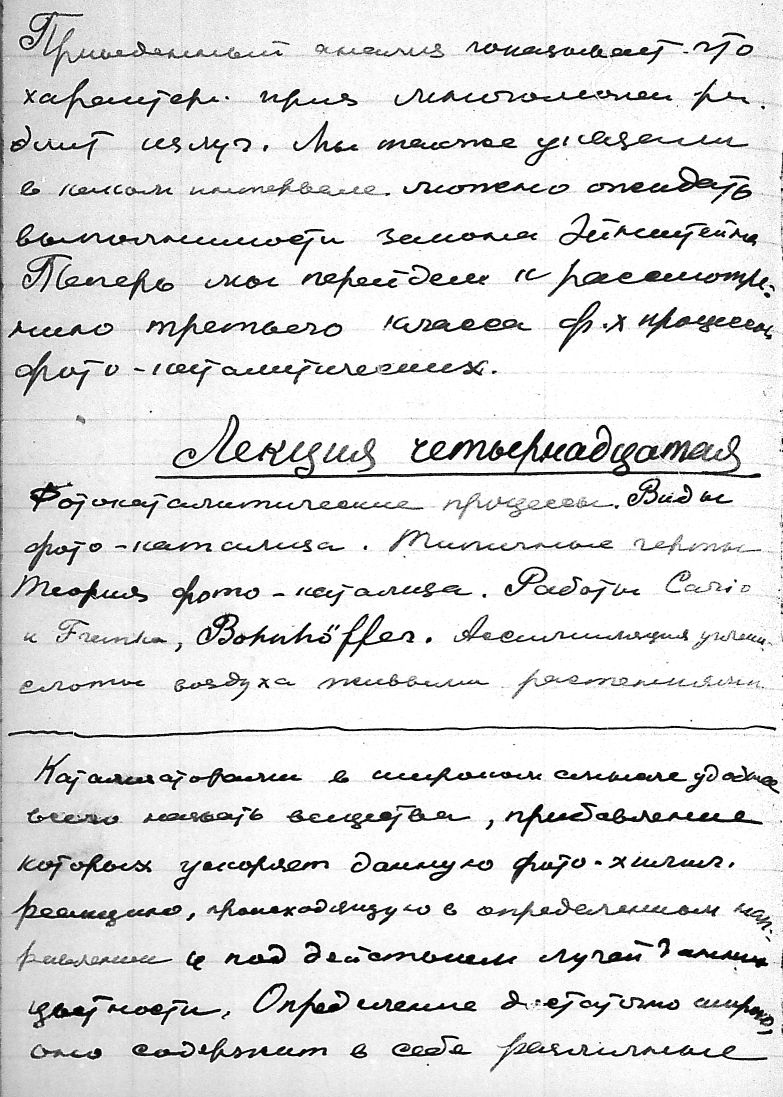 Приведенный анализ показывает что
характерн. приз
длит излуч. Мы также указали
в каком интервале можно ожидать
выполнимости закона Эйнштейна
Теперь мы перейдем к рассмотре-
нию третьего класса ф.х процессов
фото-каталитических.
Лекция четырнадцатая
Фотокаталитические процессы. Виды
фото-катализа. Типичные черты
Теория фото-катализа. Работы Cario
и Franka, Bohnhöffer. Ассимиляция углеки-
слоты воздуха живыми растениями
Катализаторами в широком смысле удобнее
всего назвать вещества, прибавление
которых ускоряет данную фото-химич.
реакцию, происходящую в определенном нап-
равлении и под действием лучей данной
цветности. Определение достаточно широко,
оно содержит в себе различные